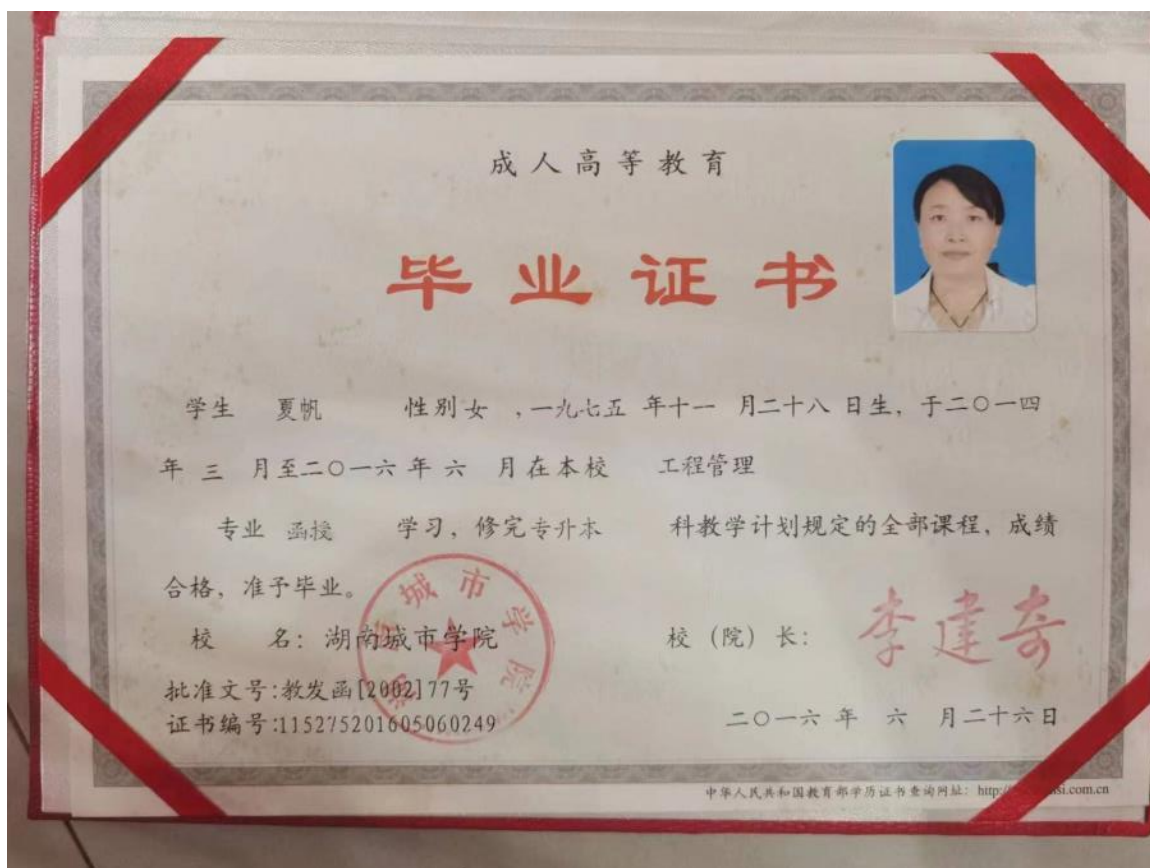 成人高等教育
毕业证书
学生 夏帆 性别女 ,一九七五 年十一 月二十八 日生, 于二〇一四
年 三 月至二〇一六 年 六 月在本校 工程管理
专业 函授 学习, 修完专升本 科教学计划规定的全部课程, 成绩
合格, 准予毕业。
校 名: 湖南城市学院
校（院）长: 李建奇
批准文号:教发函[2002]77号
证书编号:115275201605060249
二〇一六 年 六 月二十六日
湖南城市学院
中华人民共和国教育部学历证书查询网址: http:/
si.com.cn